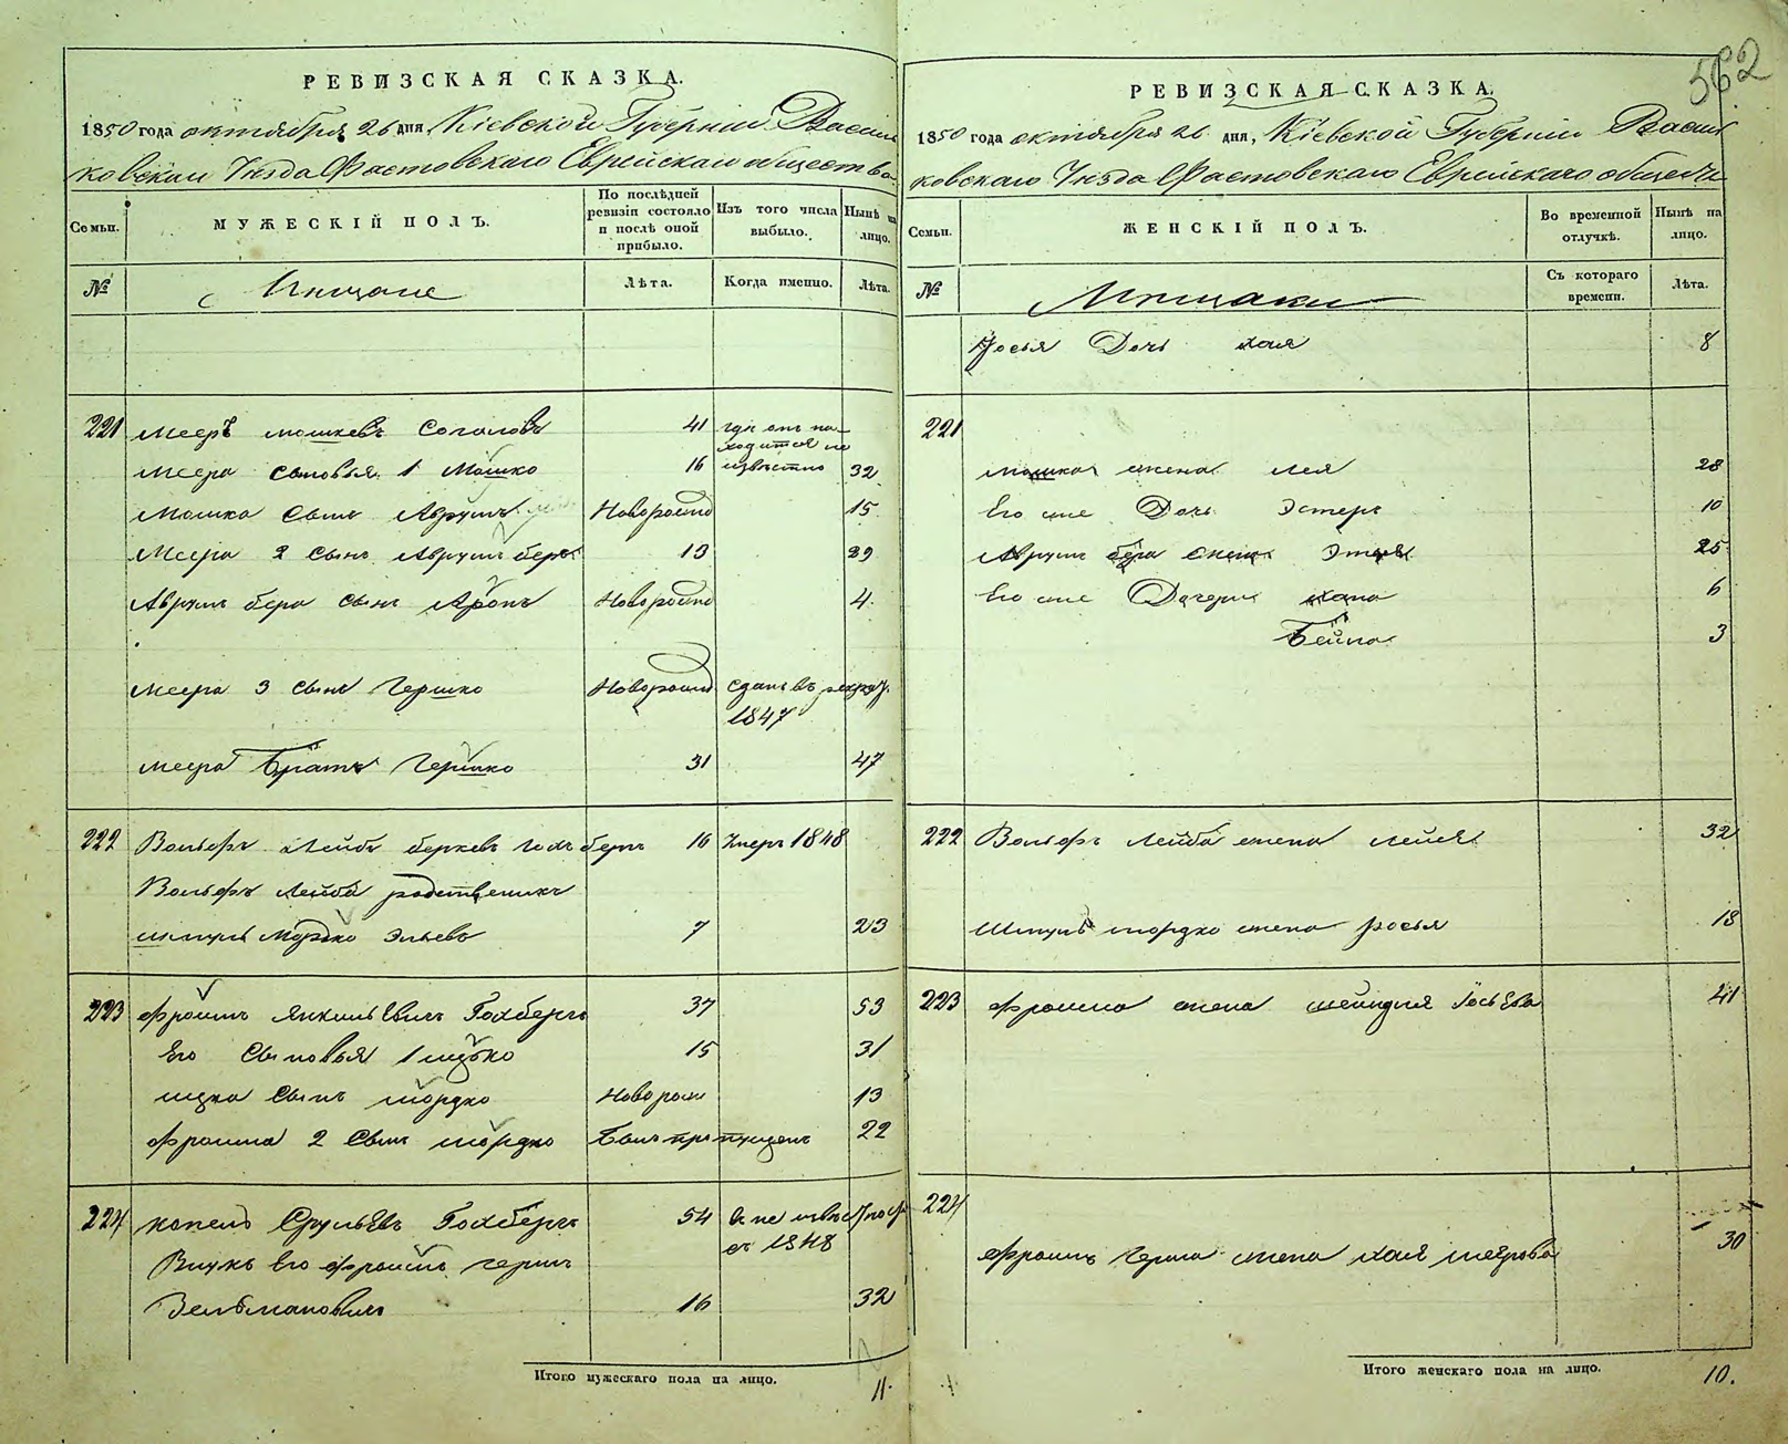 562
РЕВИЗСКАЯ СКАЗКА.
1850 года октября 26 дня, Кіевской Губерніи Василь
ковскаго Уезда Фастовскаго Еврейскаго общества
Семьи.
МУЖЕСКІЙ ПОЛЪ.
По послѣдней ревизіи состояло и послѣ оной прибыло.
Изъ того числа выбыло.
Нынѣ на лицо.
№
Мещане
Лѣта.
Когда именно.
Лѣта.
221 Мееръ Мошкевъ 41 где онъ на
ходится не
Меера Сыновья 1 Мошко 16 известно 32
Мошка Сынъ Аврумъ Новорожд 15
Меера 2 Сынъ Аврумъ беръ 13 29
Аврумъ бера Сынъ Аронъ Новорожд 4
Меера 3 Сынъ Гершко Новорожд Сданъ въ рекру.
1847
Меера Братъ Гершко 31 47
222 Вольфъ Лейба берковъ Гохбергъ 16 Умеръ 1848
Вольфъ Лейба родственикъ
Шмуль Мордко Эльевъ 7 23
223 Фроимъ Янкилевичъ Гохбергъ 37 53
Его Сыновья 1 Ицко 15 31
Ицка Сынъ Мордко Новорож 13
Фроима 2 Сынъ Мордко Былъ пропущенъ 22
224 Копель Срульевъ Гохбергъ 54
съ 1848
Внукъ Его Фроимъ Герш
Зельмановичъ 16 32
Итого мужескаго пола на лицо. 11.
РЕВИЗСКАЯ СКАЗКА.
1850 года октября 26 дня, Кіевской Губерніи Василь
ковскаго Уезда Фастовскаго Еврейскаго общест
Семьи.
ЖЕНСКІЙ ПОЛЪ.
Во временной отлучкѣ.
Нынѣ на лицо.
№
Мещанки
Съ котораго времени.
Лѣта.
Дочь Хая 8
221
Мошка жена Лея 28
Его же Дочь Эстеръ 10
Аврумъ бера жена 25
Его же Дочери Хана 6
Бейла 3
222 Вольфъ Лейба жена 32
Шмуль Мордко жена Росья 18
223 Фроима жена Шейндля 41
224
Фроимъ Герша жена Хая Меерова 30
Итого женскаго пола на лицо. 10.